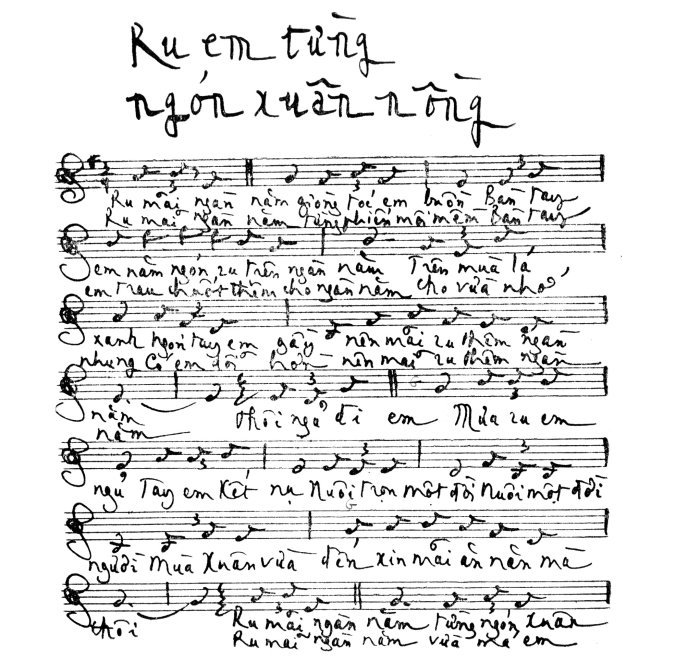 Ru em từng
ngón xuân nồng
Ru mãi ngàn năm giòng tóc em buồn Bàn tay
Ru mãi ngàn năm từng phiến môi mềm Bàn tay
em năm ngón ru trên ngàn năm Trên mùa lá
em trau chuốt thêm cho ngàn năm cho vừa nhớ
xanh ngón tay em gầy nên mãi ru thêm ngàn
nhung Có em dỗi hờn nên mãi ru thêm ngàn
năm Thôi ngủ đi em Mưa ru em
năm
ngủ Tay em kết nụ Nuôi trọn một đời Nuôi một đời
người Mùa Xuân vừa đến xin mãi ăn năn mà
thôi Ru mãi ngàn năm từng ngón xuân
Ru mãi ngàn năm vừa má em